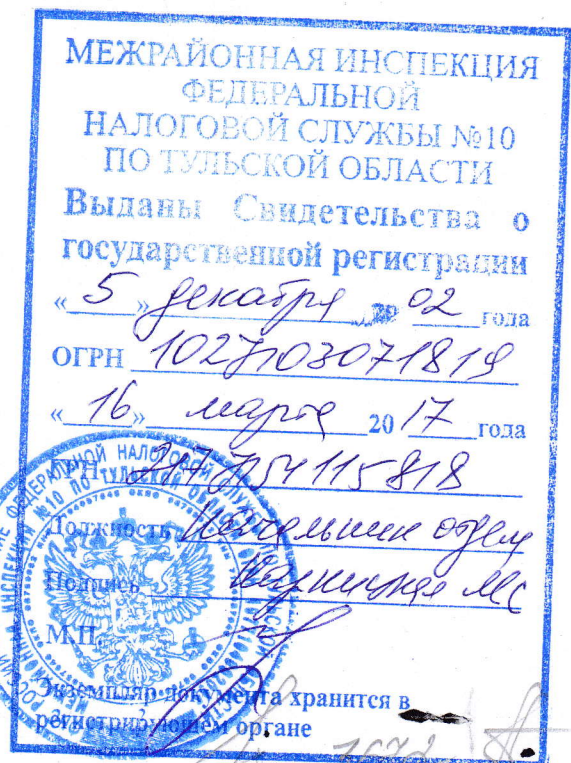 МЕЖРАЙОННАЯ ИНСПЕКЦИЯ
ФЕДЕРАЛЬНОЙ
НАЛОГОВОЙ СЛУЖБЫ №10
ПО ТУЛЬСКОЙ ОБЛАСТИ
Выданы Свидетельства о
государственной регистрации
« 5 » декабря 20 02 года
ОГРН 1027103071819
« 16 » марта 20 17 года
ГРН
Должность Начальник отдела
Подпись
М.П.
Экземпляр документа хранится в
регистрирующем органе